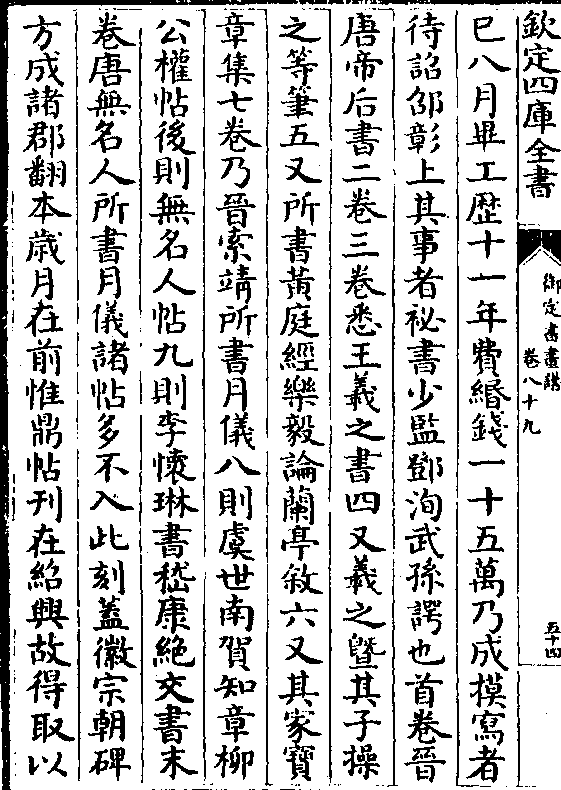 欽定四庫全書
御定書畫譜
卷八十九
五十四
巳八月畢工歴十一年費緡錢一十五萬乃成摸寫者
待詔邵彰上其事者袐書少監鄧洵武孫諤也首卷晉
唐帝后書二卷三卷悉王羲之書四又羲之曁其子操
之等筆五又所書黃庭經樂毅論蘭亭敘六又其家寶
章集七卷乃晉索靖所書月儀八則虞世南賀知章柳
公權帖後則無名人帖九則李懷琳書嵇康絶交書末
卷唐無名人所書月儀諸帖多不入此刻蓋徽宗朝碑
方成諸郡翻本歳月在前惟鼎帖刊在紹興故得取以